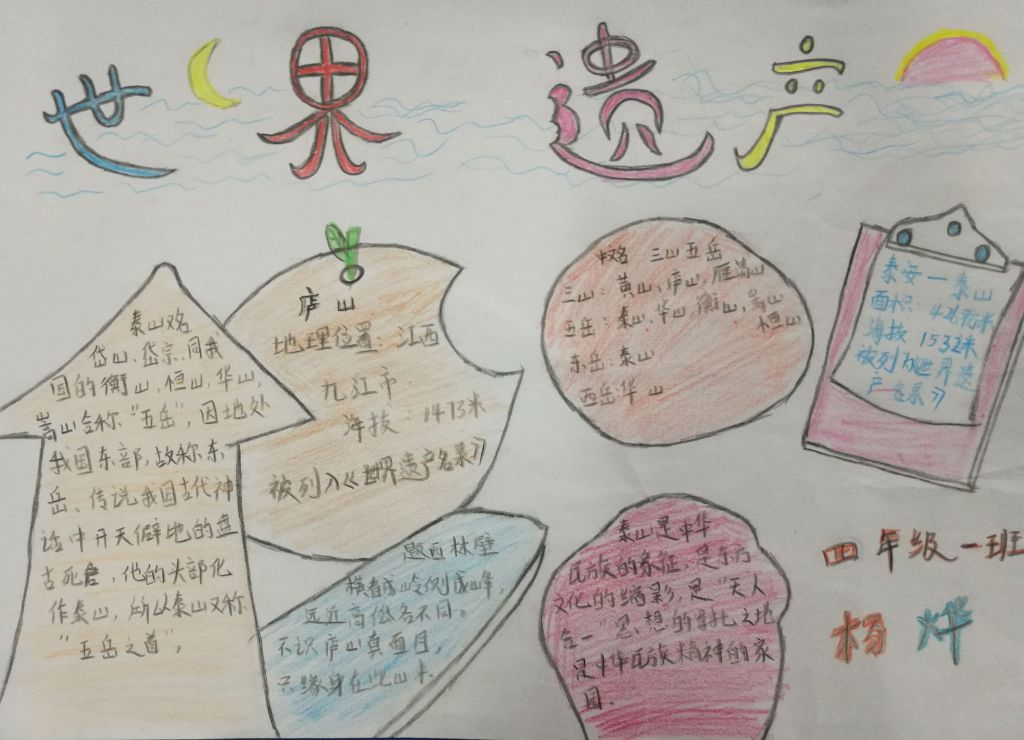 世界遗产
泰山又名
岱山、岱宗、同我
国的衡山、恒山、华山,
嵩山合称"五岳",因地处
我国东部,故称东
岳、传说我国古代神
话中开天僻地的盘
古死后,他的头部化
作泰山,所以泰山又称
"五岳之首",
庐山
地理位置:江西
九江市
海技:1473米
被列入《世界遗产名录》
题西林壁
横看成岭侧成峰,
远近高低各不同。
不识庐山真面目,
只缘身在此山中.
三山五岳
三山:黄山、庐山、雁荡山
五岳:泰山、华山、衡山、嵩山
恒山
东岳:泰山
西岳:华山
泰安一泰山
海技1532米
被列为《世界遗
产名录》
泰山是中华
民族的象征,是东方
文化的缩影,是"天人
合一"思想的寄托之地
是中华民族精神的家
园.
四年级一班
杨烨